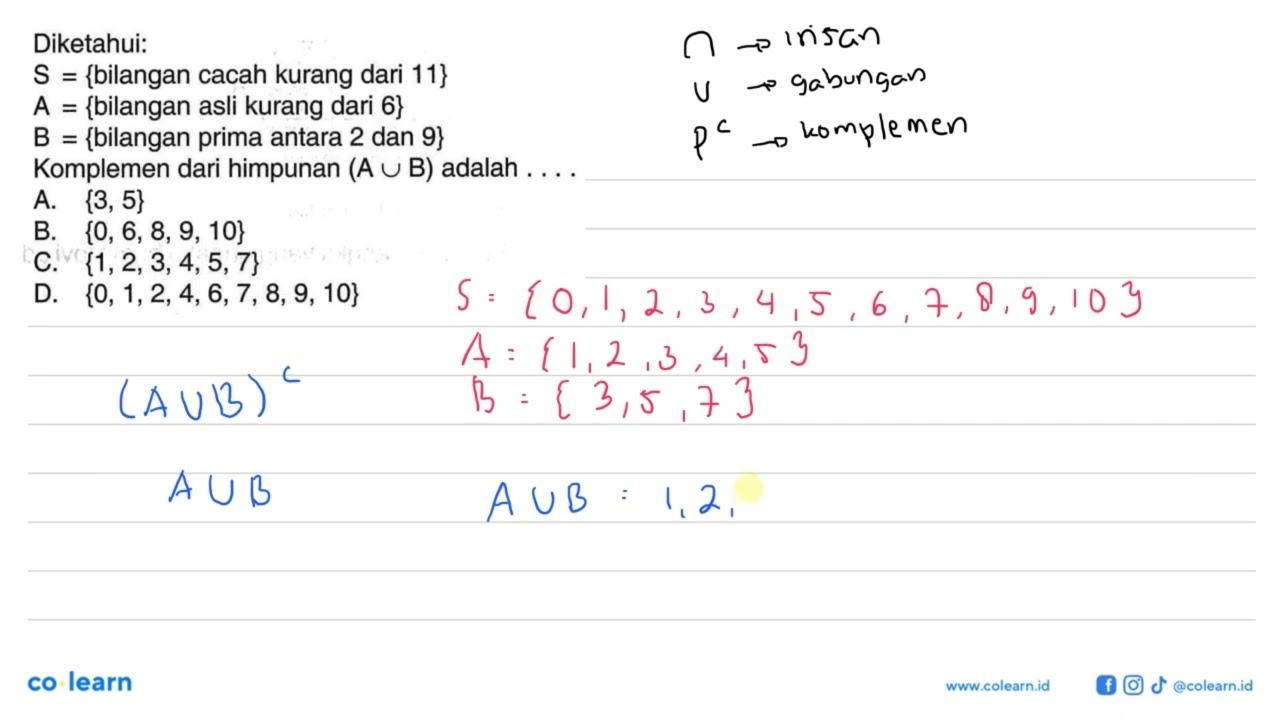 Diketahui:
S = {bilangan cacah kurang dari 11}
A = {bilangan asli kurang dari 6}
B = {bilangan prima antara 2 dan 9}
Komplemen dari himpunan (A ∪ B) adalah . . . .
A. {3, 5}
B. {0, 6, 8, 9, 10}
C. {1, 2, 3, 4, 5, 7}
D. {0, 1, 2, 4, 6, 7, 8, 9, 10}
∩ → irisan
∪ → gabungan
P^c → komplemen
S = {0, 1, 2, 3, 4, 5, 6, 7, 8, 9, 10}
A = {1, 2, 3, 4, 5}
B = {3, 5, 7}
(A ∪ B)^c
A ∪ B
A ∪ B = 1, 2,
co learn
www.colearn.id
@colearn.id